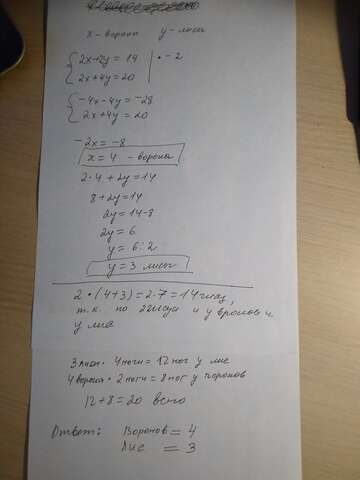 x - ворона y - лиса
{ 2x+2y = 14 | · -2
2x+4y = 20
{ -4x-4y = -28
2x+4y = 20
-2x = -8
x = 4 - ворона
2·4 + 2y = 14
8 + 2y = 14
2y = 14-8
2y = 6
y = 6:2
y = 3 лисы
2 · (4+3) = 2·7 = 14 глаз,
т.к. по 2 глаза и у воронов и
у лис
3 лисы · 4 ноги = 12 ног у лис
4 ворона · 2 ноги = 8 ног у воронов
12+8 = 20 всего
Ответ: Воронов = 4
Лис = 3